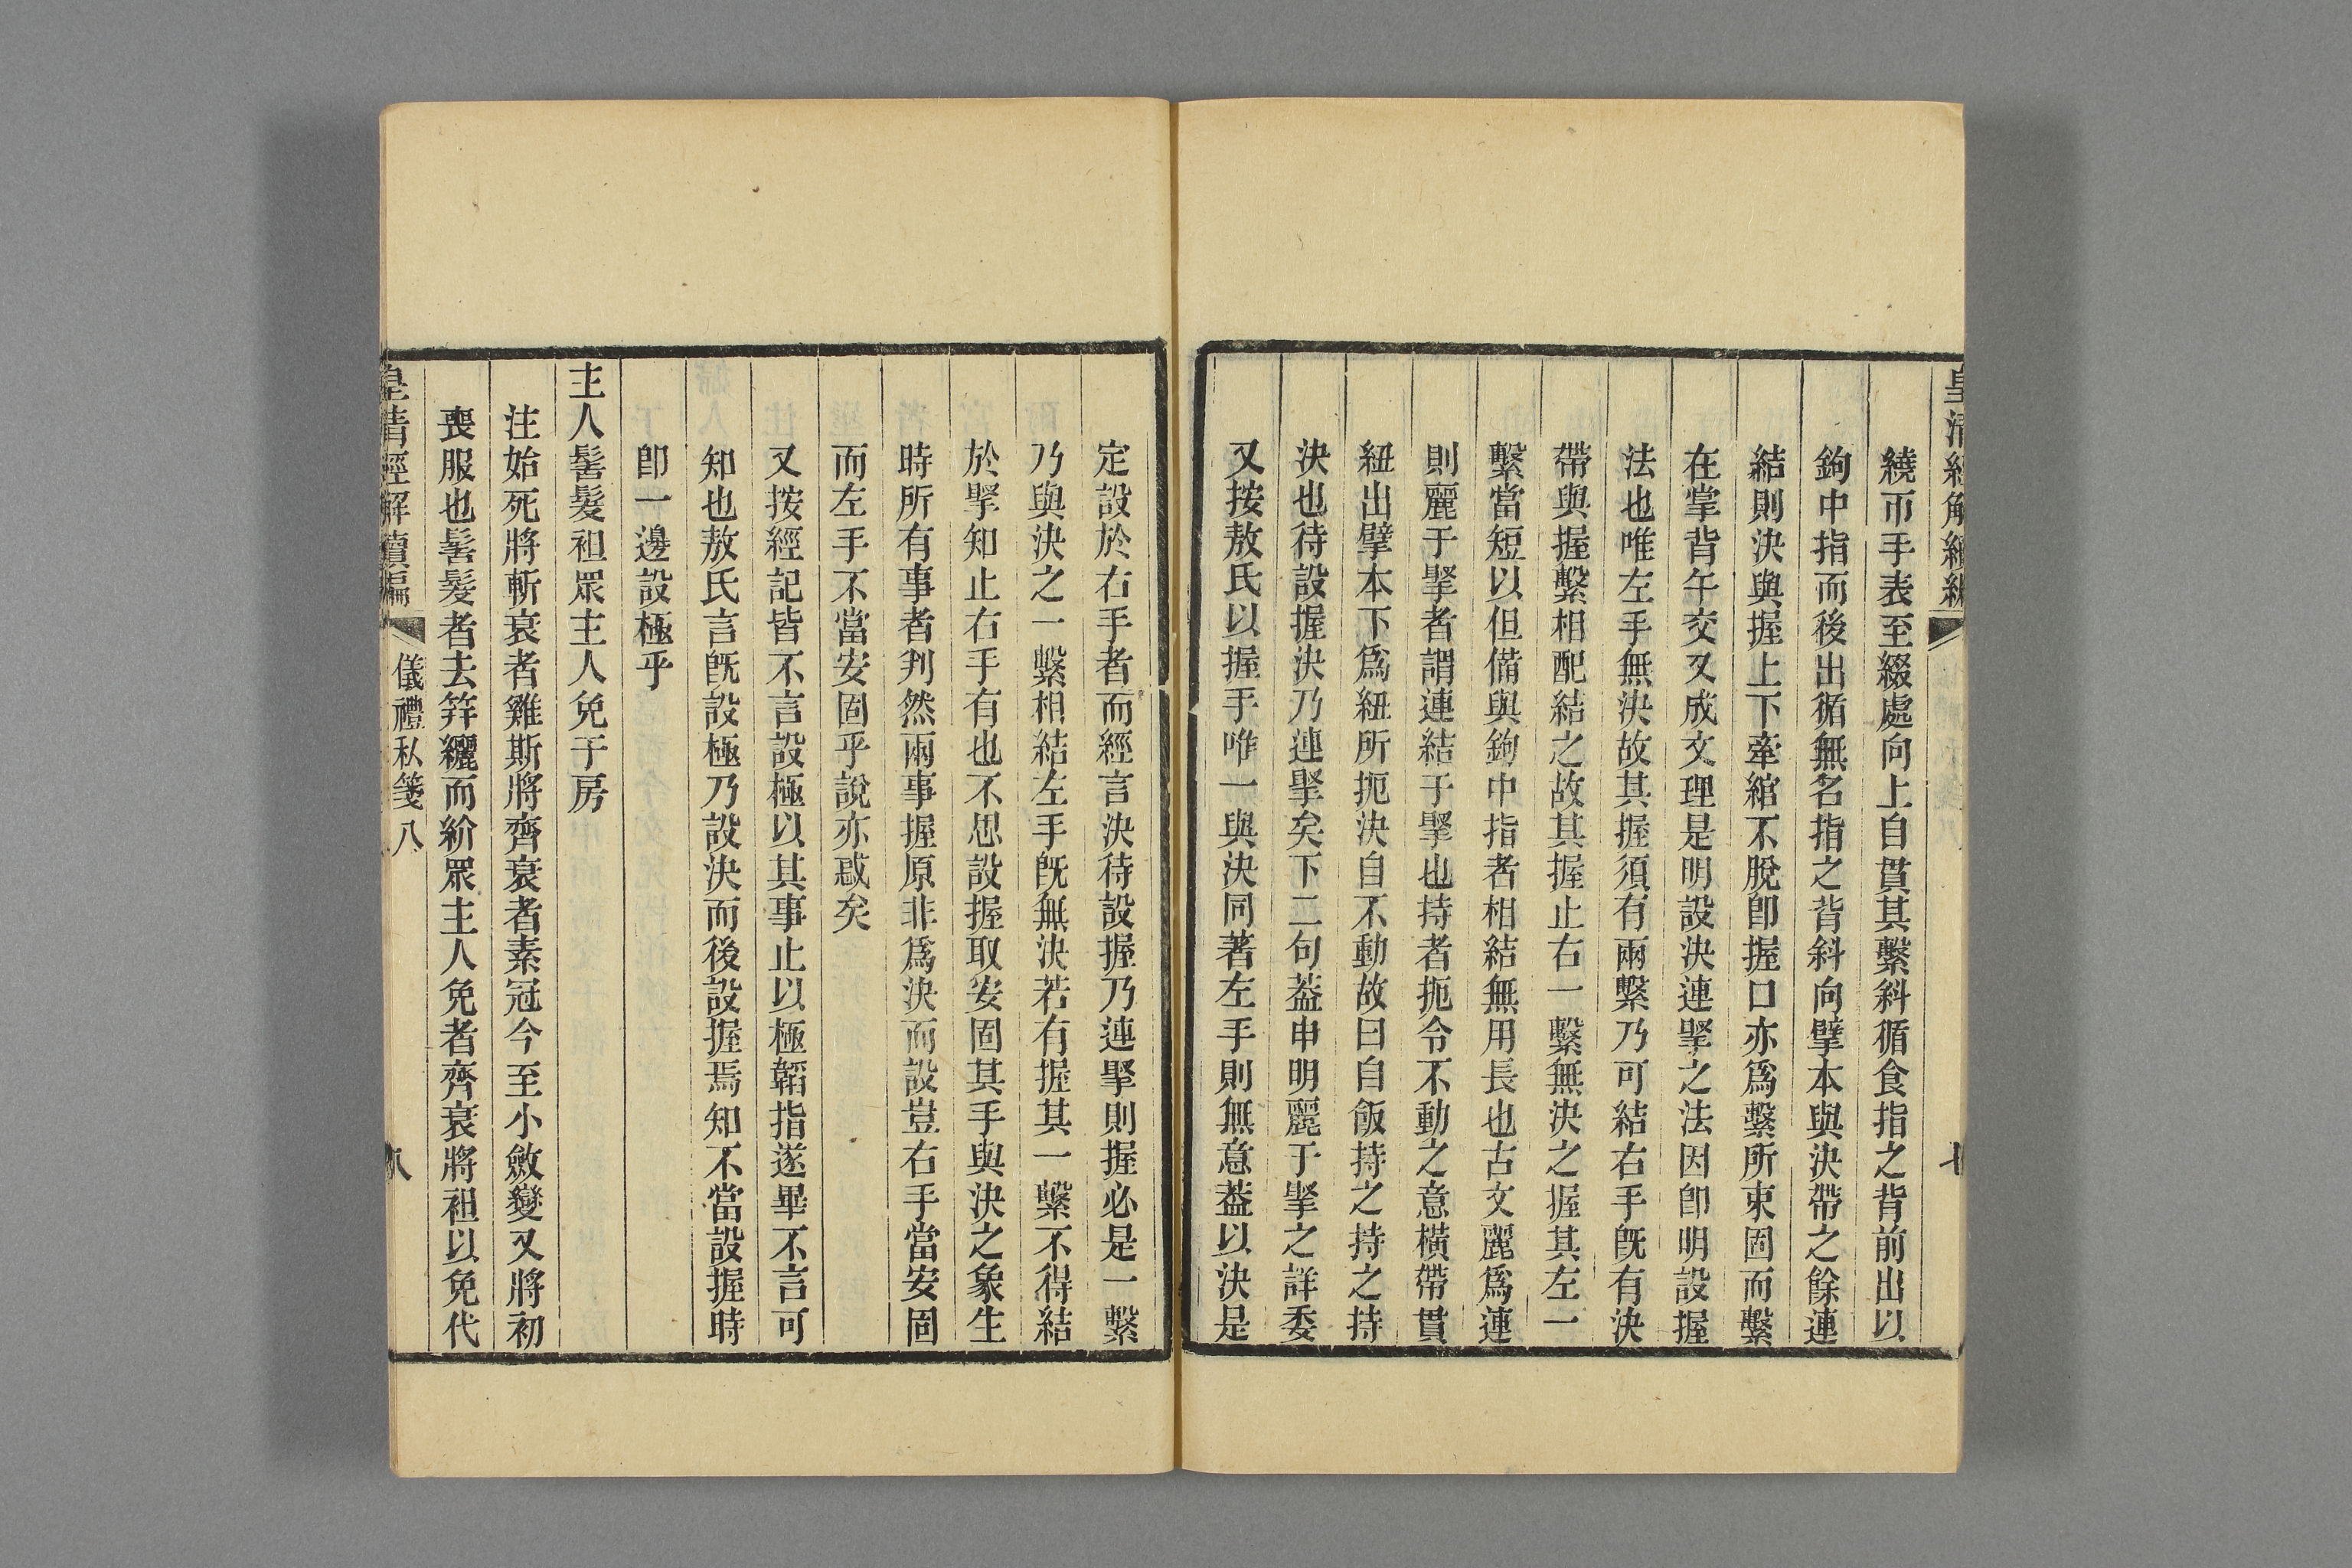 皇清經解續編
七
繞帀手表至綴處向上自貫其繫斜循食指之背前出以
鉤中指而後出循無名指之背斜向擘本與決帶之餘連
結則決與握上下牽綰不脫卽握口亦爲繫所束固而繫
在掌背午交叉成文理是明設決連掔之法因卽明設握
法也唯左手無決故其握須有兩繫乃可結右手旣有決
帶與握繫相配結之故其握止右一繫無決之握其左一
繫當短以但備與鉤中指者相結無用長也古文麗爲連
則麗于掔者謂連結于掔也持者扼令不動之意橫帶貫
紐出擘本下爲紐所扼決自不動故曰自飯持之持之持
決也待設握決乃連掔矣下二句葢申明麗于掔之詳委
又按敖氏以握手唯一與決同著左手則無意葢以決是
定設於右手者而經言決待設握乃連掔則握必是一繫
乃與決之一繫相結左手旣無決若有握其一繫不得結
於掔知止右手有也不思設握取安固其手與決之象生
時所有事者判然兩事握原非爲決而設豈右手當安固
而左手不當安固乎說亦惑矣
又按經記皆不言設極以其事止以極韜指遂畢不言可
知也敖氏言旣設極乃設決而後設握焉知不當設握時
卽一邊設極乎
主人髺髮袒眾主人免于房
注始死將斬衰者雞斯將齊衰者素冠今至小斂變又將初
喪服也髺髮者去筓纚而紒眾主人免者齊衰將袒以免代
皇清經解續編
儀禮私箋八
八